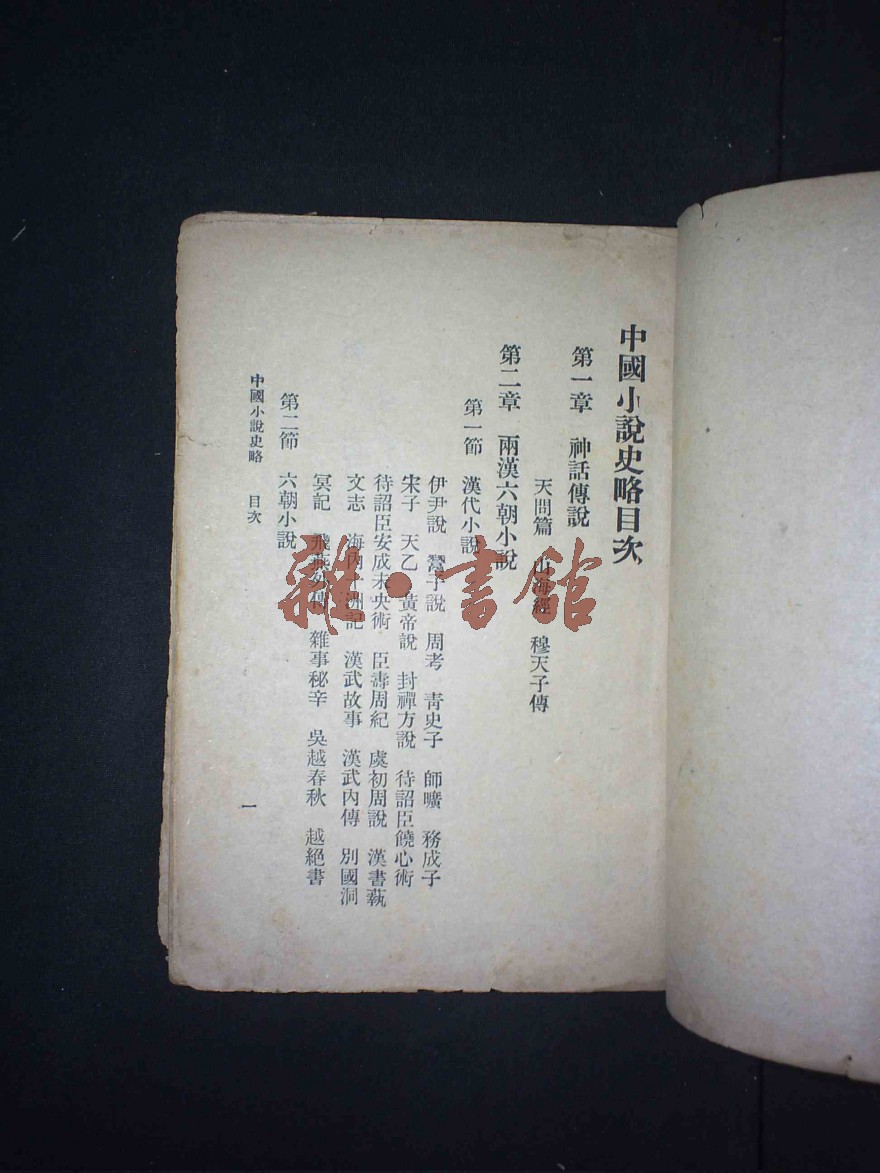 中國小說史略目次
第一章 神話傳說
天問篇 山海經 穆天子傳
第二章 兩漢六朝小說
第一節 漢代小說
伊尹說 鬻子說 周考 青史子 師曠 務成子
宋子 天乙 黃帝說 封禪方說 待詔臣饒心術
待詔臣安成未央術 臣壽周紀 虞初周說 漢書藝
文志 海內十洲記 漢武故事 漢武內傳 別國洞
冥記 飛燕外傳 雜事秘辛 吳越春秋 越絕書
第二節 六朝小說
中國小說史略 目次
一
雜·書館